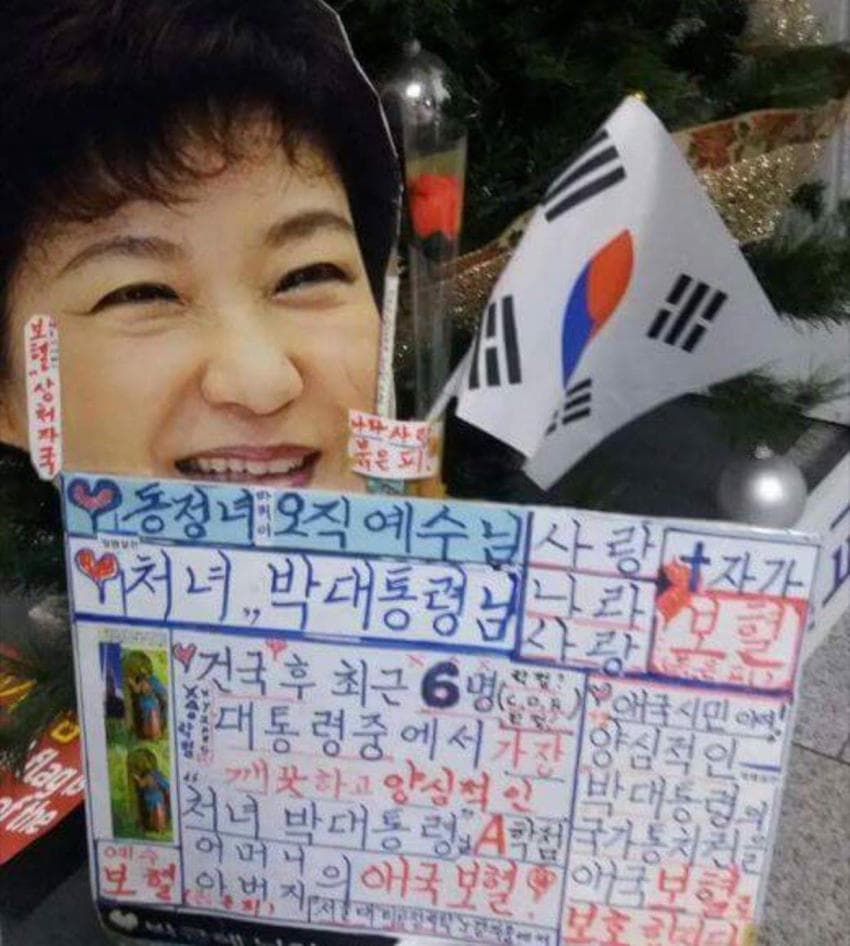 보혈 상처자국
나라사랑
붉은피!
동정녀 마리아 오직 예수님
처녀 „박대통령님
사랑
나라
사랑
✝자가
보혈
건국 후 최근 6명
대통령중에서 가장
깨끗하고 양심적인
"처녀 박대통령"님 A학점
어머니
아버지의 애국보혈!
예수
보혈
애국시민 여러분!
양심적인
박대통령의
국가통치권을
애국보혈로
보호 합시다
flag
of the